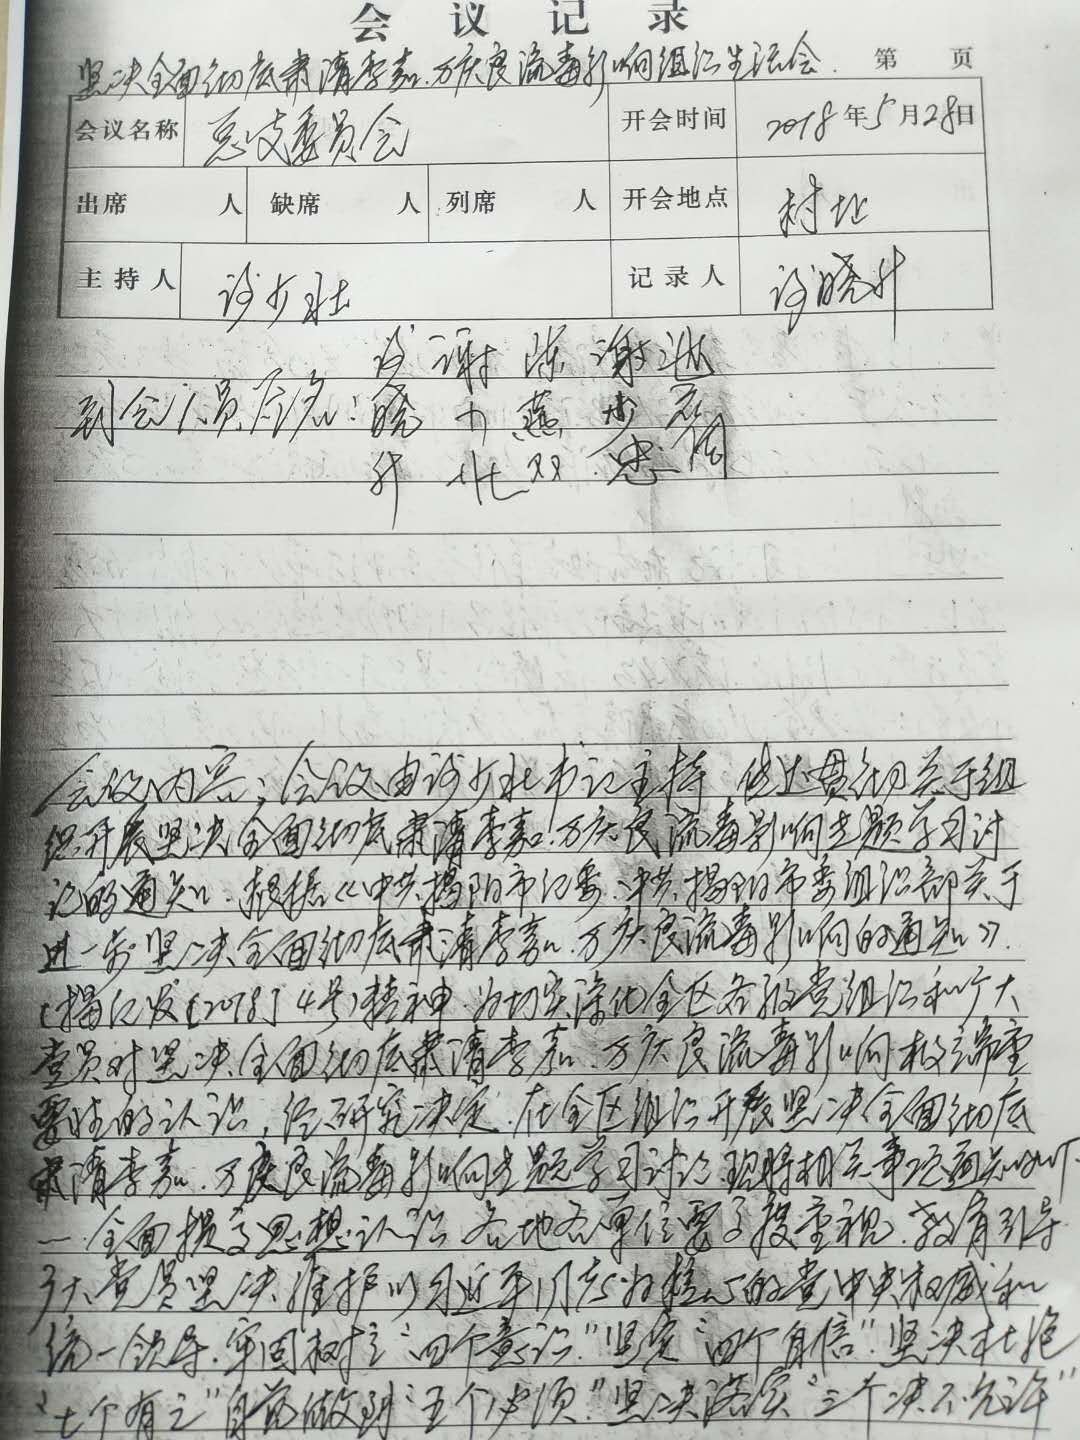 会议记录
坚决全面彻底肃清李嘉、万庆良流毒影响组织生活会 第 页
会议名称 总支委员会 开会时间 2018年5月28日
出席 人 缺席 人 列席 人 开会地点 村址
主持人 少壮 记录人 晓升
谢 陈 谢
到会人员签名： 晓 少 燕 少
升 壮 双 忠
会议内容：会议由 少壮书记主持 传达贯彻关于组
织开展坚决全面彻底肃清李嘉、万庆良流毒影响专题学习讨
论的通知。根据《中共揭阳市纪委、中共揭阳市委组织部关于
进一步坚决全面彻底肃清李嘉、万庆良流毒影响的通知》.
(揭纪发[2018]4号)精神.为切实深化全区各级党组织和广大
党员对坚决全面彻底肃清李嘉、万庆良流毒影响极端重
要性的认识，经研究决定.在全区组织开展坚决全面彻底
肃清李嘉、万庆良流毒影响专题学习讨论.现将相关事项通知如下.
一、全面提高思想认识 各地各单位要高度重视.教育引导
广大党员坚决维护以习近平同志为核心的党中央权威和
统一领导.牢固树立"四个意识"坚定"四个自信".坚决杜绝
"七个有之"自觉做到"五个必须".坚决落实"三个决不允许"